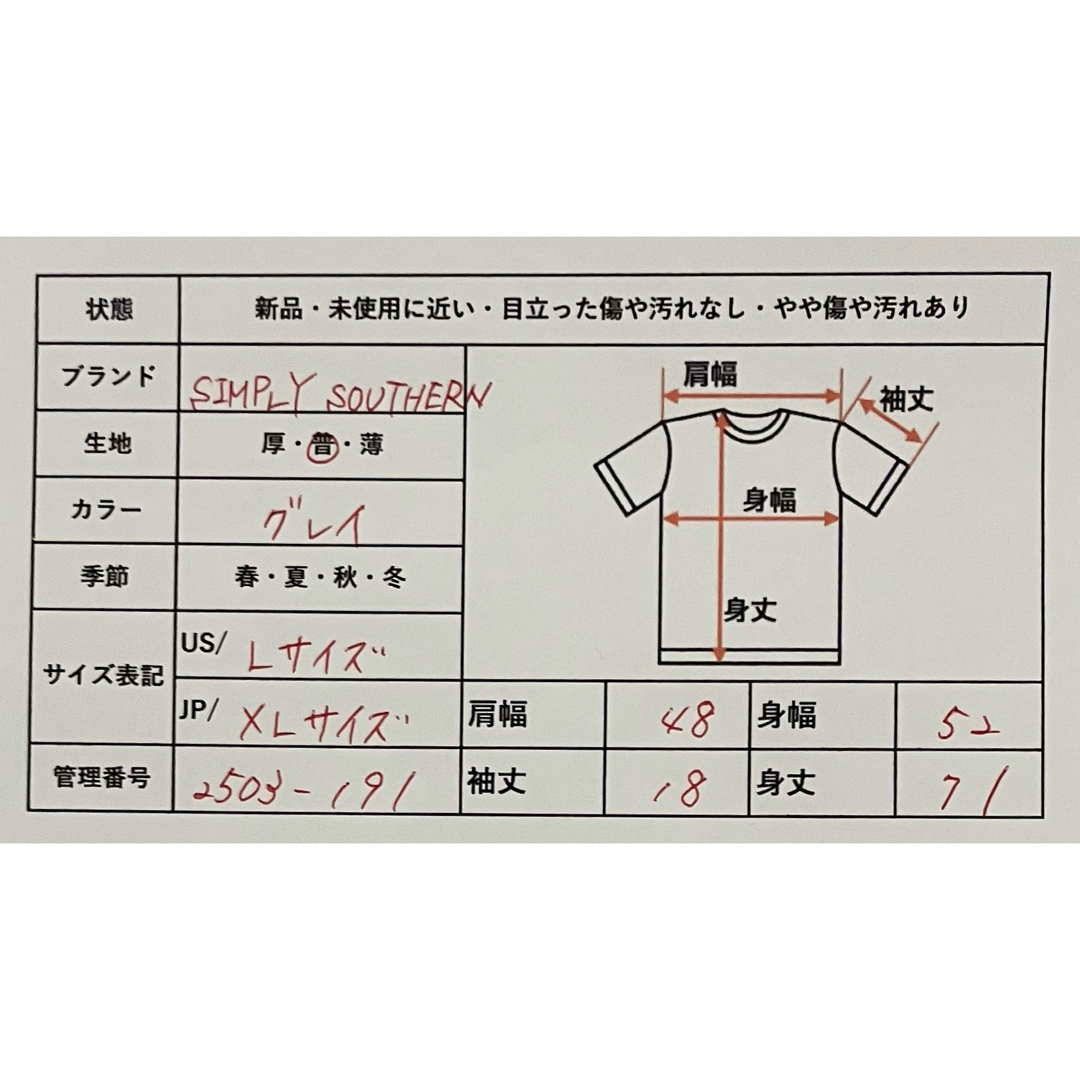 状態 新品・未使用に近い・目立った傷や汚れなし・やや傷や汚れあり
ブランド SIMPLY SOUTHERN
生地 厚・普・薄
カラー グレイ
季節 春・夏・秋・冬
サイズ表記
US/ Lサイズ
JP/ XLサイズ
管理番号 2503-191
肩幅
袖丈
身幅
身丈
肩幅 48 身幅 52
袖丈 18 身丈 71